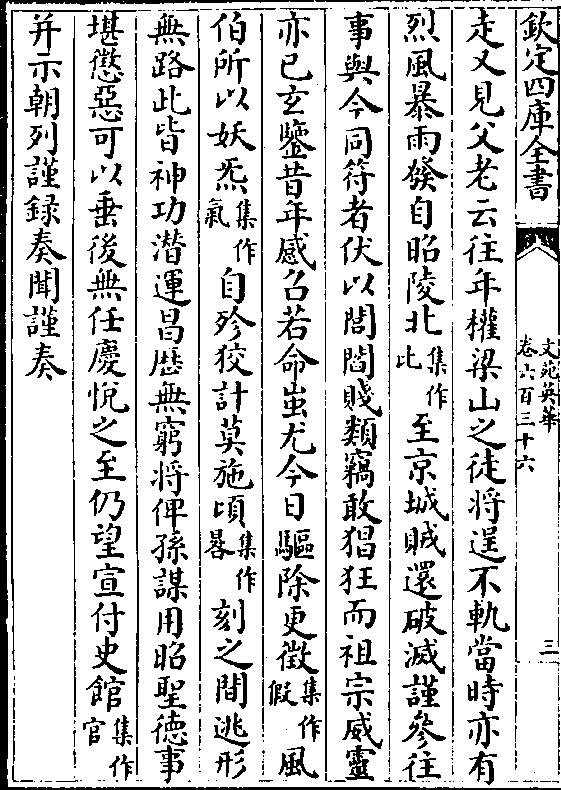 欽定四庫全書
文苑英華
卷六百三十六
三
走又見父老云往年權梁山之徒將逞不軌當時亦有
烈風暴雨發自昭陵北集作比至京城賊還破滅謹參往
事與今同符者伏以閭閻賤類竊敢猖狂而祖宗威靈
亦已玄鑒昔年感召若命蚩尤今日驅除更徵集作假風
伯所以妖炁集作氣自殄狡計莫施頃集作晷刻之間逃形
無路此皆神功潛運昌歴無窮將俾孫謀用昭聖德事
堪懲惡可以垂後無任慶悅之至仍望宣付史館集作官
并示朝列謹録奏聞謹奏